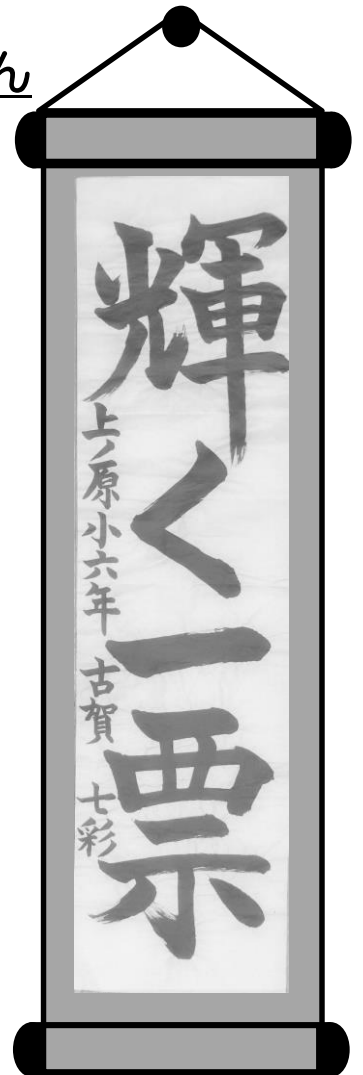 ん
輝く一票
上ノ原小六年 古賀 七彩